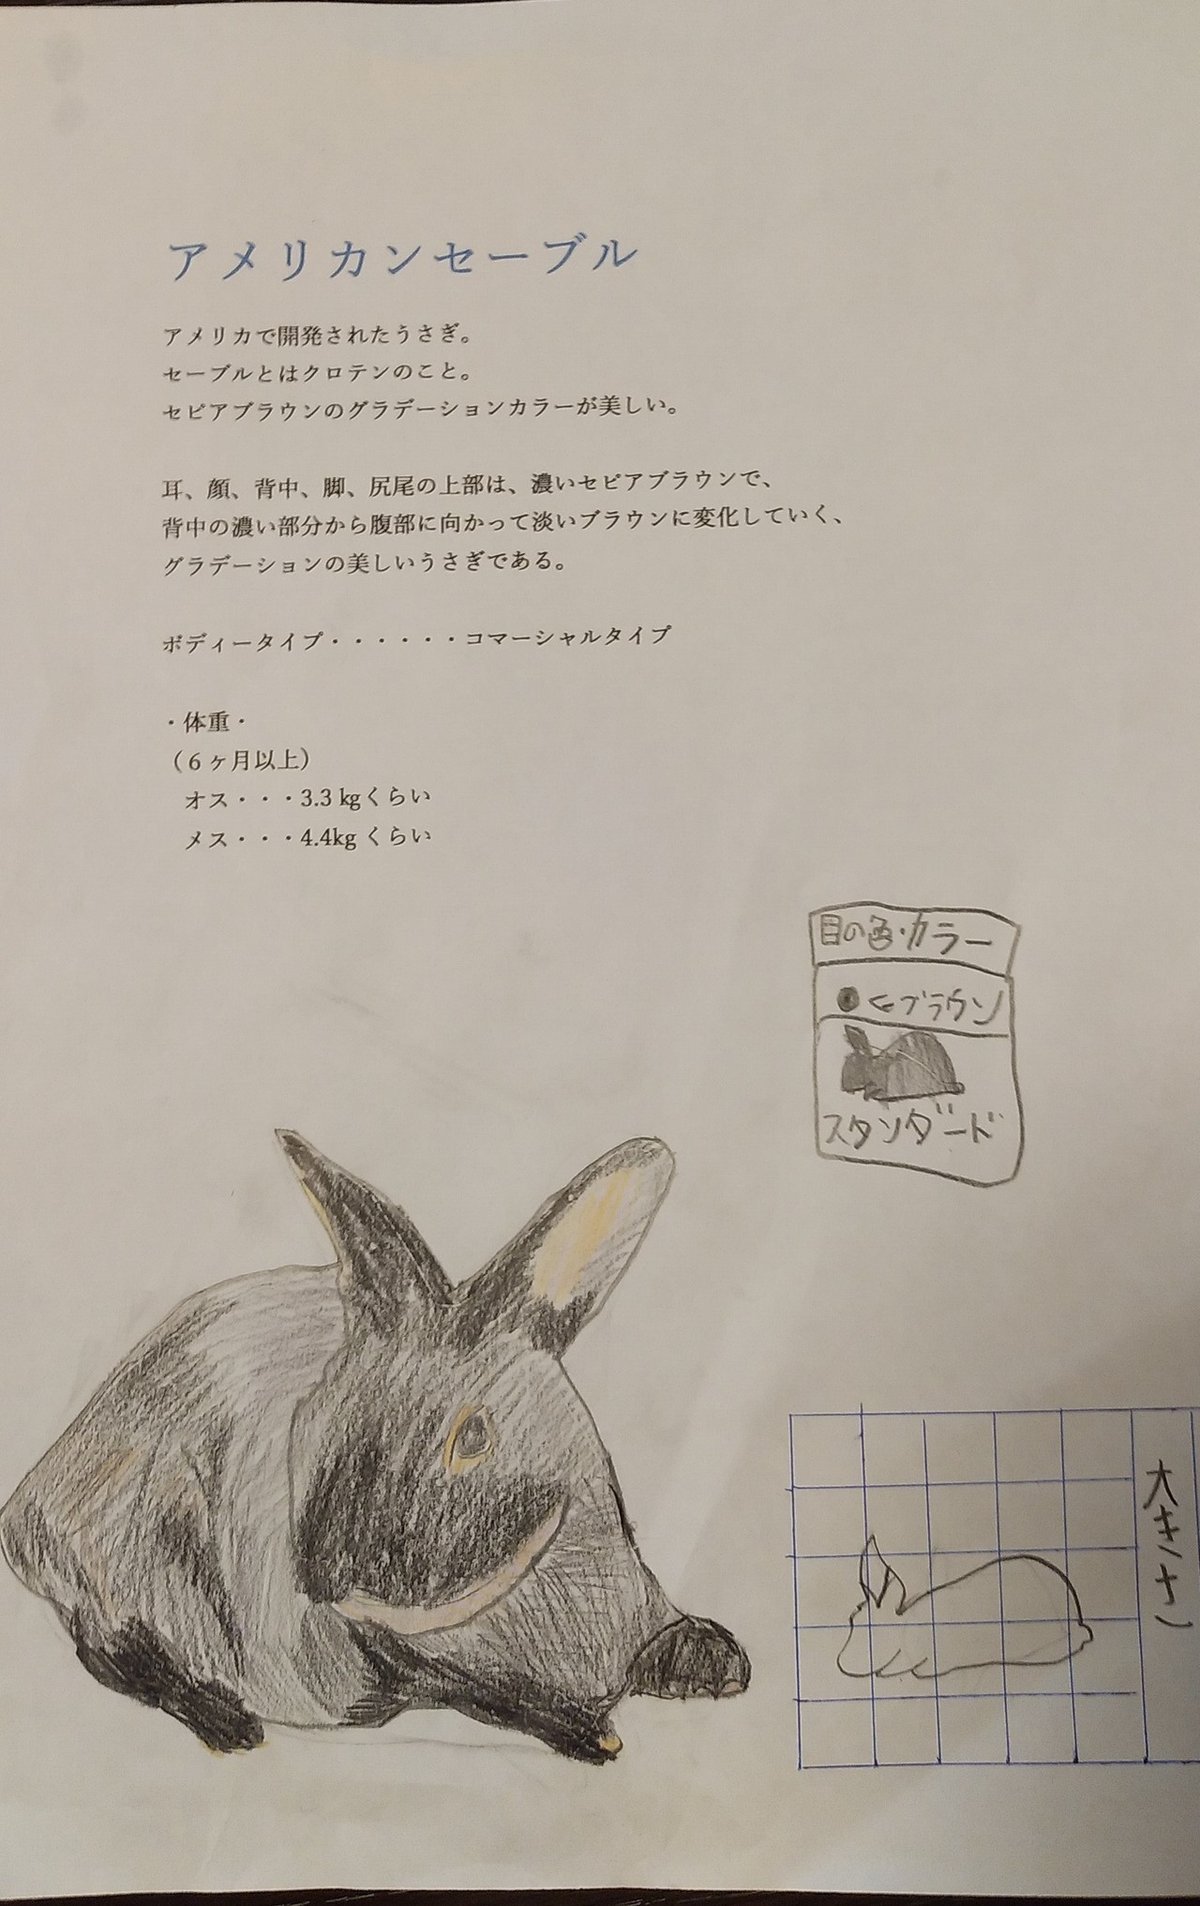 アメリカンセーブル
アメリカで開発されたうさぎ。
セーブルとはクロテンのこと。
セピアブラウンのグラデーションカラーが美しい。
耳、顔、背中、脚、尻尾の上部は、濃いセピアブラウンで、
背中の濃い部分から腹部に向かって淡いブラウンに変化していく、
グラデーションの美しいうさぎである。
ボディータイプ・・・・・・コマーシャルタイプ
・体重・
（６ヶ月以上）
オス・・・3.3㎏くらい
メス・・・4.4kgくらい
目の色・カラー
●←ブラウン
スタンダード
大きさ